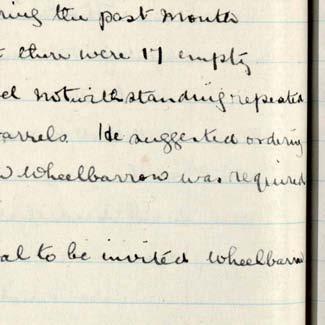 ring the past month
there were 17 empty
notwithstanding repeated
arrels. He suggested ordering
wheelbarrow was required
al to be invited wheelbarrow